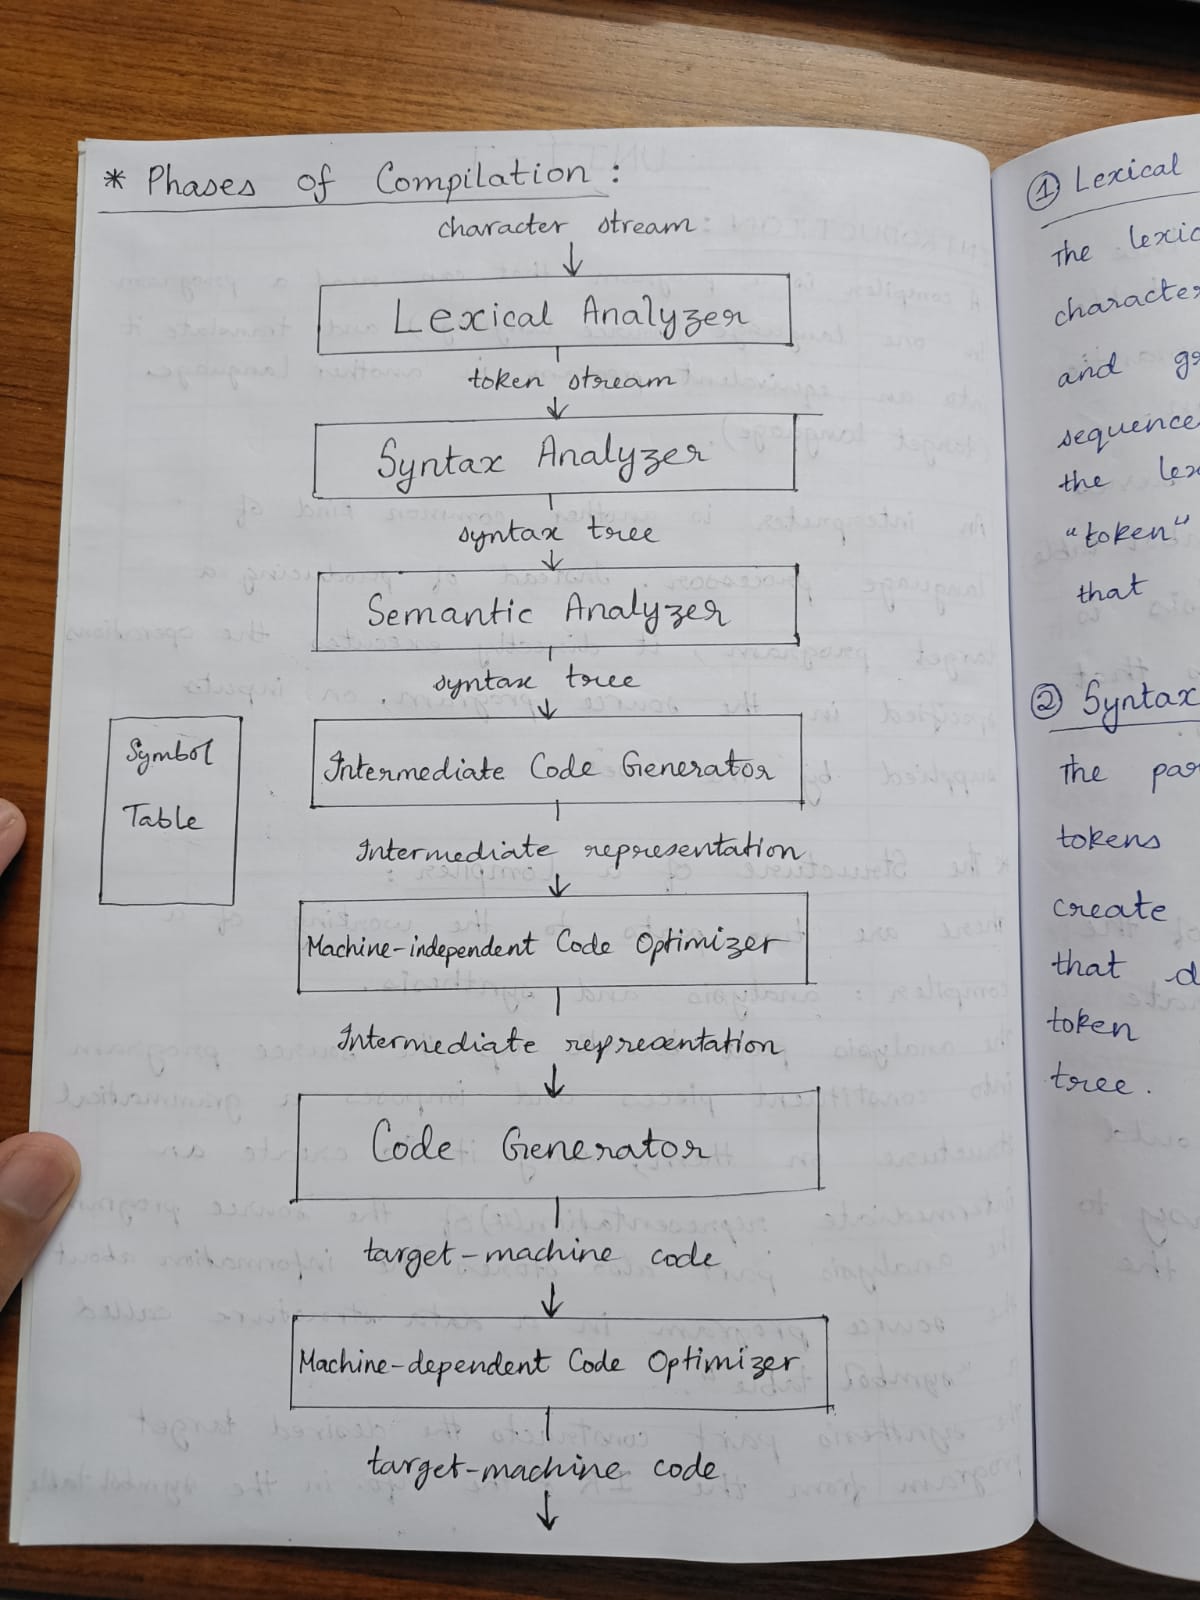 * Phases of Compilation :
character stream
Lexical Analyzer
token stream
Syntax Analyzer
syntax tree
Semantic Analyzer
syntax tree
Symbol
Table
Intermediate Code Generator
Intermediate representation
Machine-independent Code Optimizer
Intermediate representation
Code Generator
target-machine code
Machine-dependent Code Optimizer
target-machine code
① Lexical
The lexic
character
and gr
sequence
the lex
"token"
that
② Syntax
The par
tokens
create
that d
token
tree.